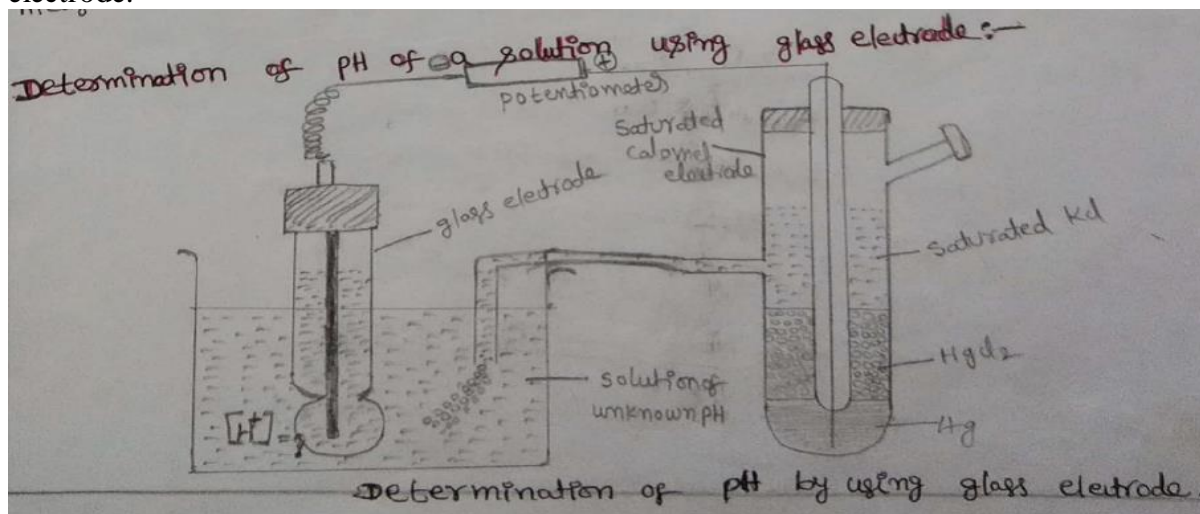 Determination of pH of a solution using glass electrode:-
⊖ ⊕
potentiometer
saturated
calomel
electrode
glass electrode
saturated Kcl
Hgcl2
solution of
unknown pH
[H+]=?
Hg
Determination of pH by using glass electrode.